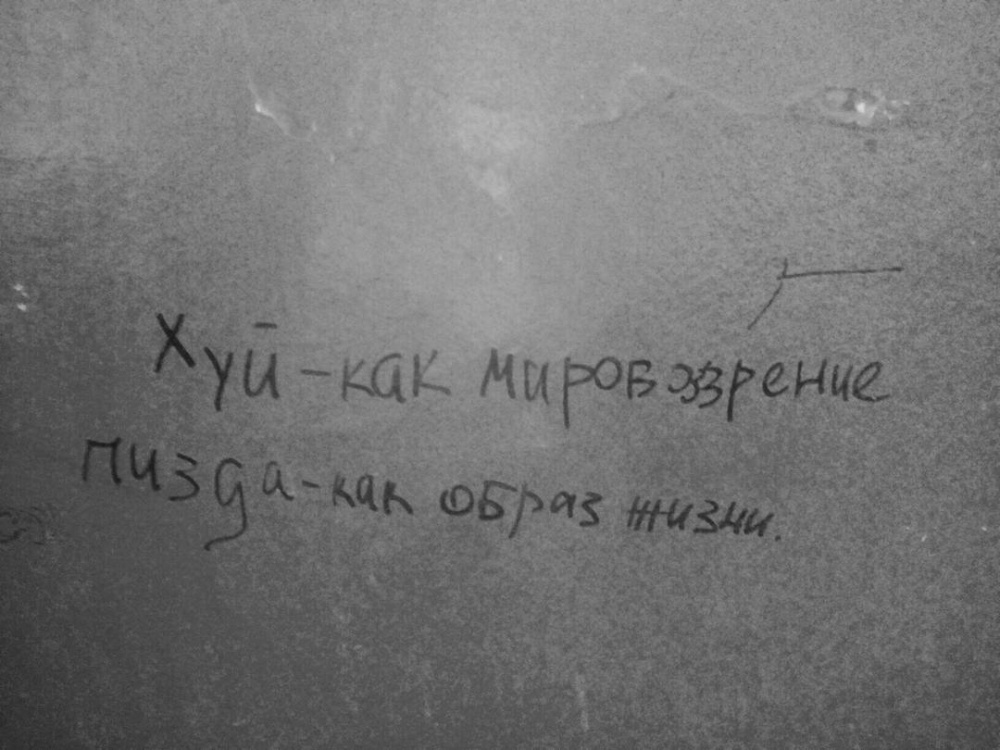 Хуй - как мировоззрение
пизда - как образ жизни.